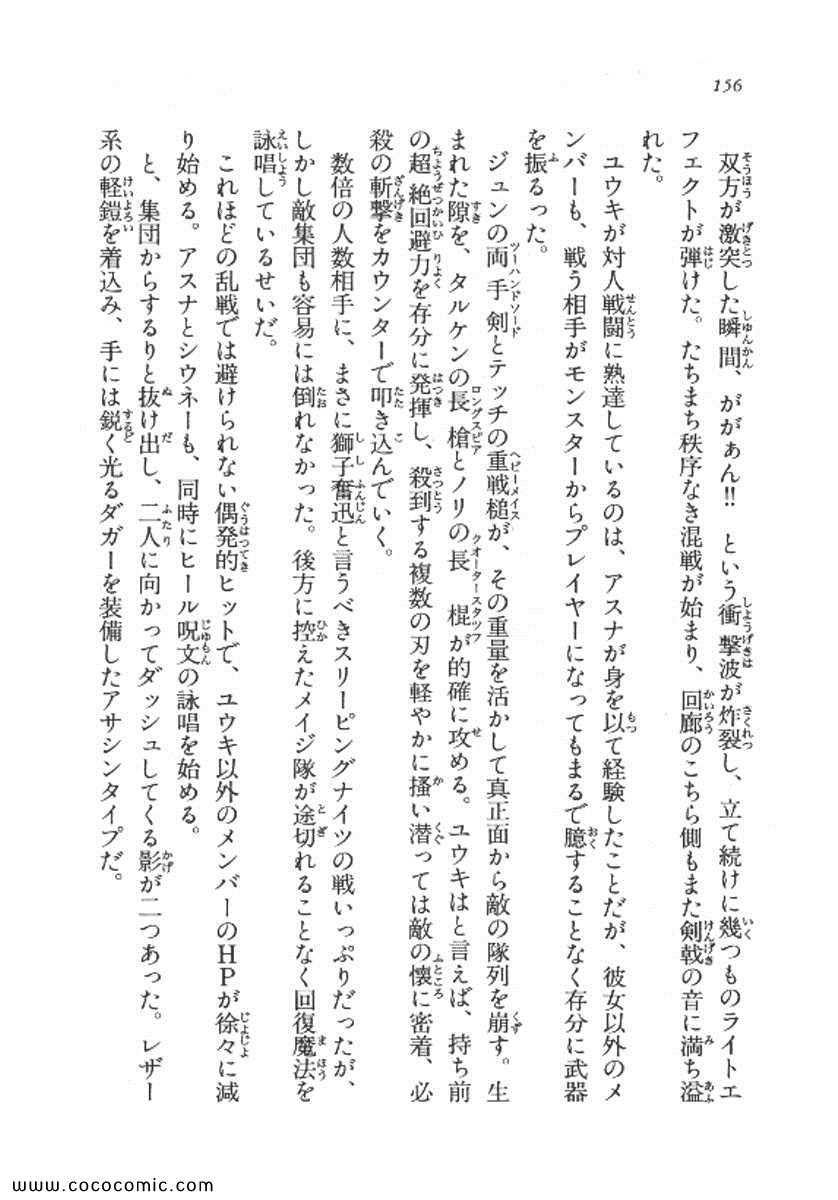 156
双方が激突した瞬間、ががぁん!! という衝撃波が炸裂し、立て続けに幾つものライトエ
フェクトが弾けた。たちまち秩序なき混戦が始まり、回廊のこちら側もまた剣戟の音に満ち溢
れた。
ユウキが対人戦闘に熟達しているのは、アスナが身を以て経験したことだが、彼女以外のメ
ンバーも、戦う相手がモンスターからプレイヤーになってもまるで臆することなく存分に武器
を振るった。
ジュンの両手剣とテッチの重戦槌が、その重量を活かして真正面から敵の隊列を崩す。生
まれた隙を、タルケンの長槍とノリの長棍が的確に攻める。ユウキはと言えば、持ち前
の超絶回避力を存分に発揮し、殺到する複数の刃を軽やかに掻い潜っては敵の懐に密着、必
殺の斬撃をカウンターで叩き込んでいく。
数倍の人数相手に、まさに獅子奮迅と言うべきスリーピングナイツの戦いっぷりだったが、
しかし敵集団も容易には倒れなかった。後方に控えたメイジ隊が途切れることなく回復魔法を
詠唱しているせいだ。
これほどの乱戦では避けられない偶発的ヒットで、ユウキ以外のメンバーのHPが徐々に減
り始める。アスナとシウネーも、同時にヒール呪文の詠唱を始める。
と、集団からするりと抜け出し、二人に向かってダッシュしてくる影が二つあった。レザー
系の軽鎧を着込み、手には鋭く光るダガーを装備したアサシンタイプだ。
www.cococomic.com